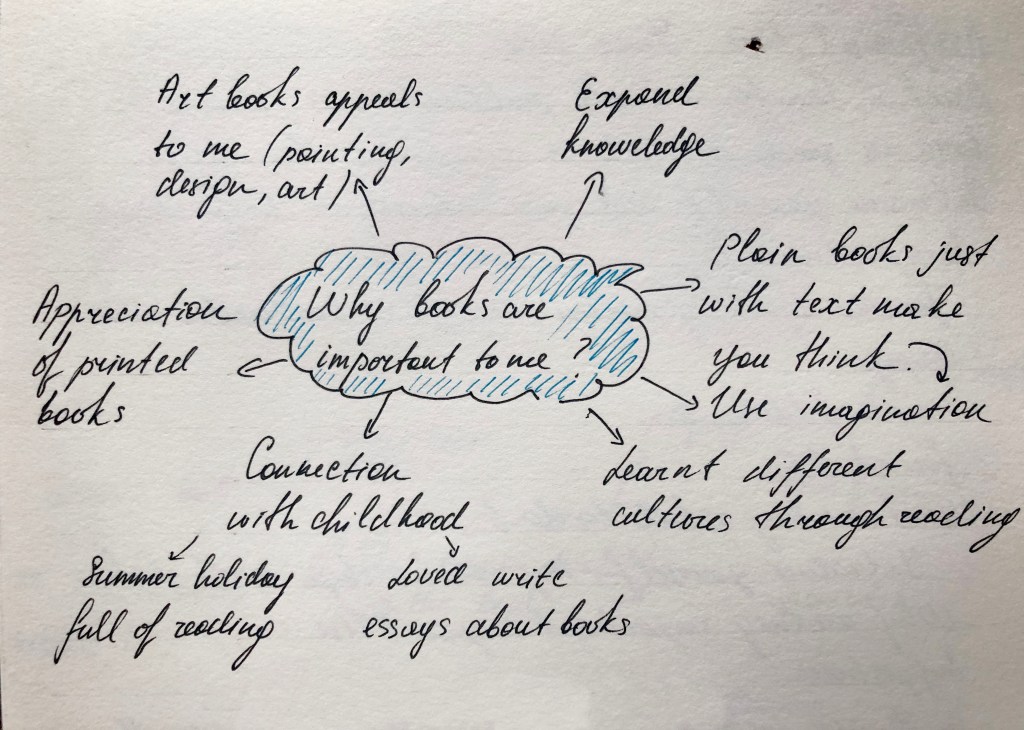 Art books appeals
to me (painting,
design, art)
Expand
knoweledge
Why books are
important to me?
Plain books just
with text make
you think.
Use imagination
Appreciation
of printed
books
Connection
with childhood
Learnt different
cultures through reading
Summer holiday
full of reading
Loved write
essays about books